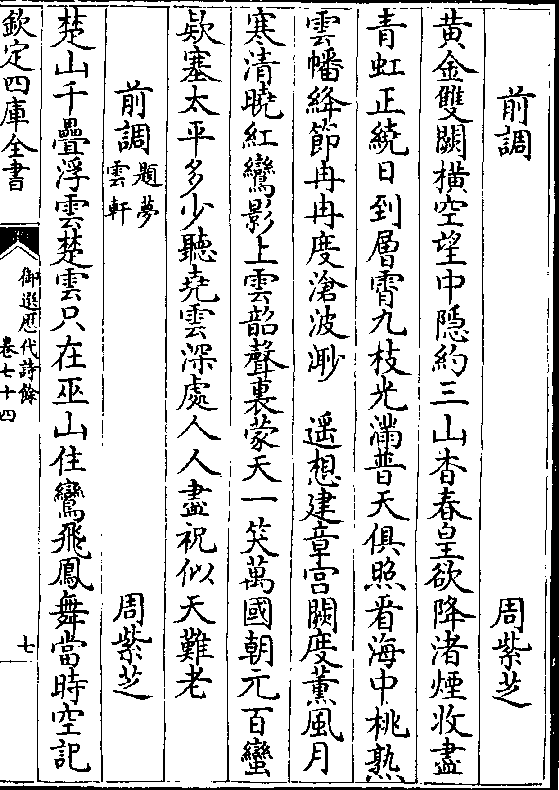 前調　周紫芝
黄金雙闕横空望中隱約三山杳春皇欲降渚煙收盡
青虹正繞日到層霄九枝光滿普天俱照看海中桃熟
雲幡絳節冉冉度滄波渺　遥想建章宫闕度薰風月
寒清曉紅鸞影上雲韶聲裏蒙天一笑萬國朝元百蠻
欵塞太平多少聽堯雲深處人人盡祝似天難老
前調題夢雲軒　周紫芝
楚山千疊浮雲楚雲只在巫山住鸞飛鳳舞當時空記
欽定四庫全書
御選歷代詩餘
卷七十四
七